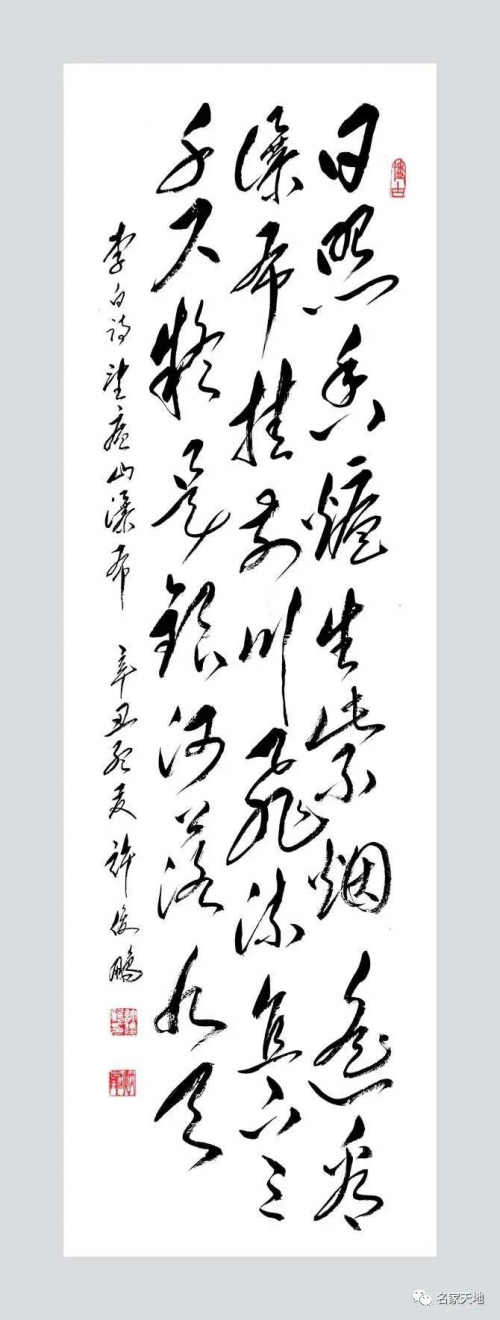 日照香爐生紫烟遥看
瀑布挂前川飛流直下三
千尺疑是银河落九天
李白诗望廬山瀑布 辛丑夏 许俊鹏
名家天地